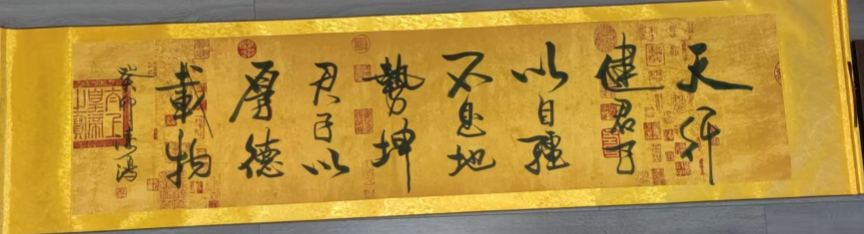 天行
健君子
以自强
不息地
势坤
君子以
厚德
载物
癸卯